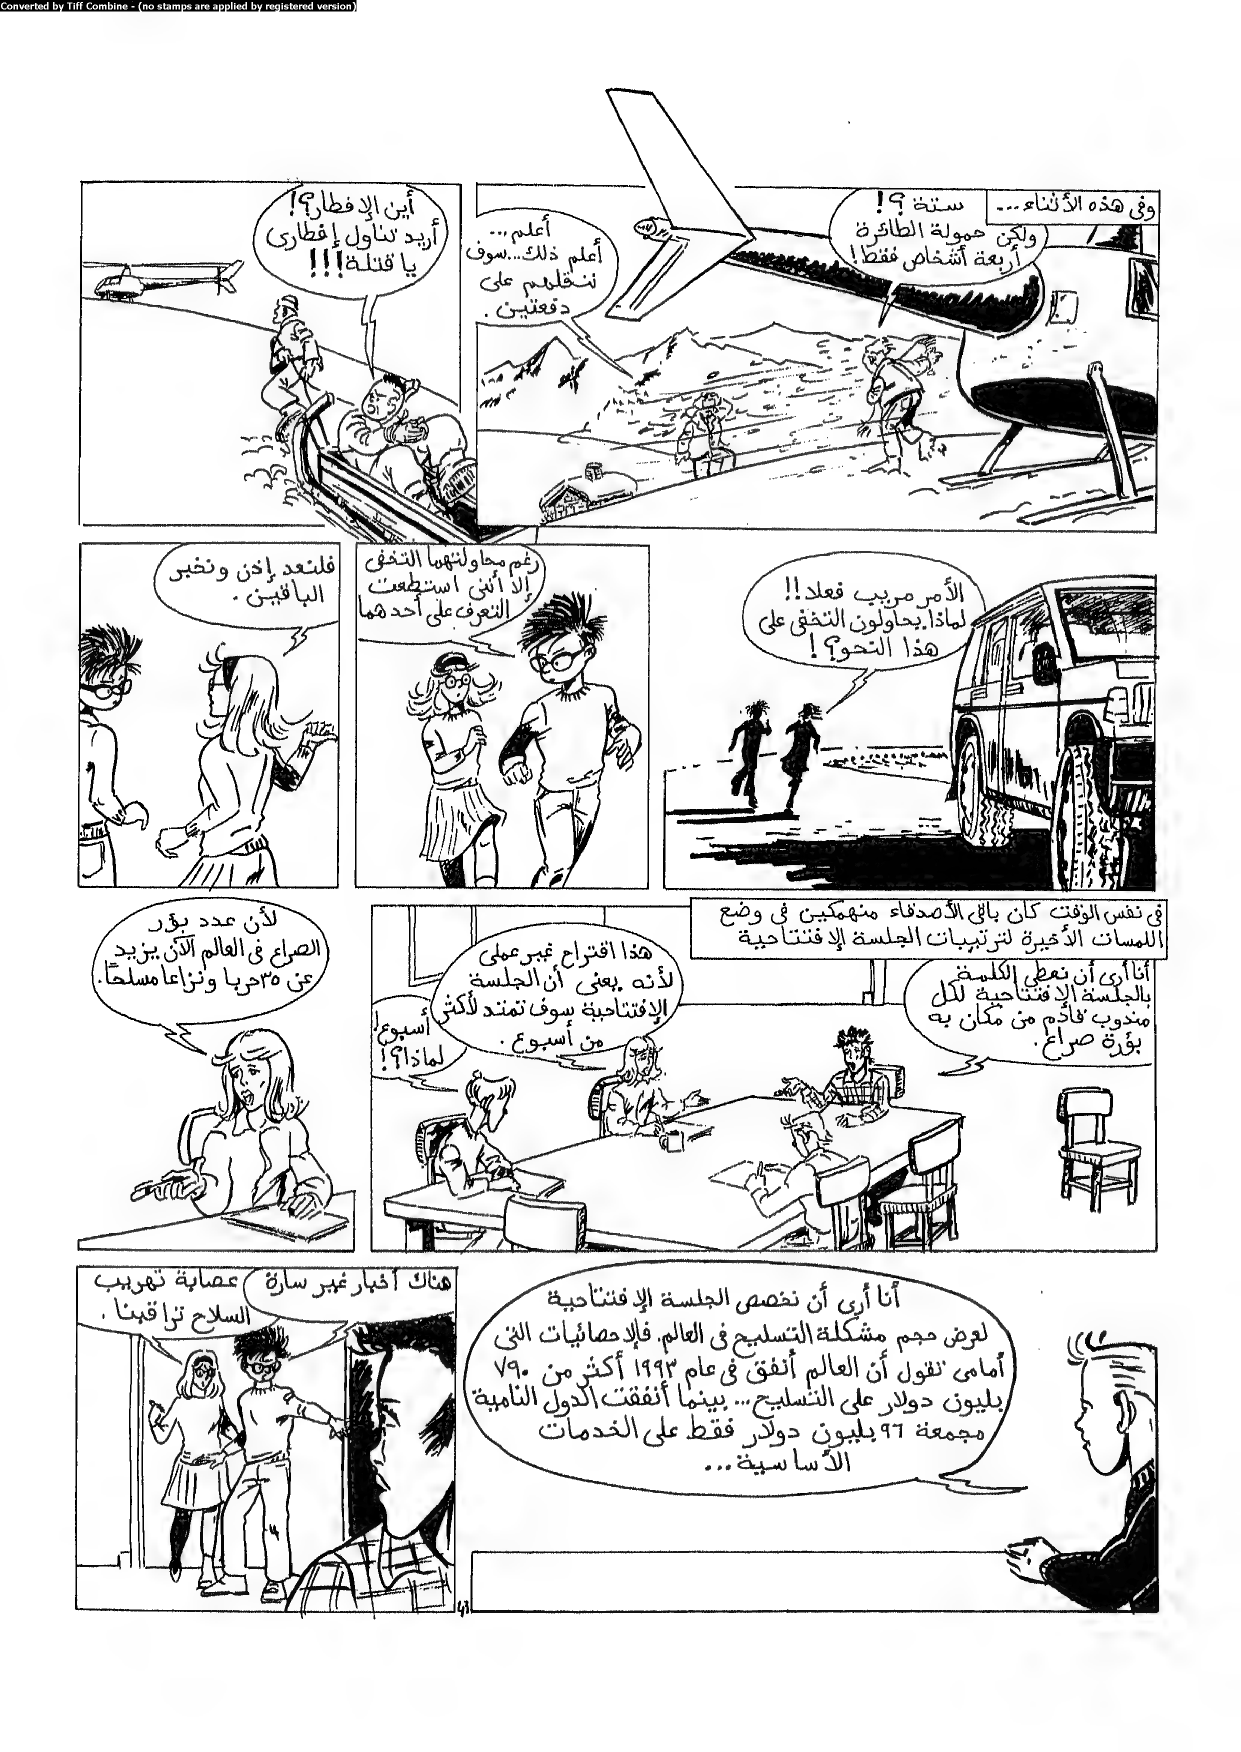 Converted by Tiff Combine - (no stamps are applied by registered version)
وفى هذه الأثناء...
ستة ؟!
ولكن حمولة الطائرة
أربعة أشخاص فقط!
أعلم...
أعلم ذلك...سوف
ننقلهم على
دفعتين.
أين الإفطار؟!
أريد تناول إفطارى
يا قتلة!!!
الأمر مريب فعلا!!
لماذا يحاولون التخفى على
هذا النحو؟!
رغم محاولتهما التخفى
إلا أننى استطعت
التعرف على أحدهما
فلنعد إذن ونخبر
الباقين.
فى نفس الوقت كان باقى الأصدقاء منهمكين فى وضع
اللمسات الأخيرة لترتيبات الجلسة الإفتتاحية
أنا أرى أن نعطى الكلمة
بالجلسة الإفتتاحية لكل
مندوب قادم من مكان به
بؤرة صراع.
هذا اقتراح غير عملى
لأنه يعنى أن الجلسة
الإفتتاحية سوف تمتد لأكثر
من أسبوع.
أسبوع!
لماذا؟!
لأن عدد بؤر
الصراع فى العالم الآن يزيد
عن ٣٥ حربا ونزاعا مسلحًا.
أنا أرى أن نخصص الجلسة الإفتتاحية
لعرض حجم مشكلة التسليح فى العالم. فالإحصائيات التى
أمامى تقول أن العالم أنفق فى عام ١٩٩٣ أكثر من ٧٩٠
بليون دولار على التسليح... بينما أنفقت الدول النامية
مجمعة ٩٦ بليون دولار فقط على الخدمات
الأساسية...
هناك أخبار غير سارة
عصابة تهريب
السلاح تراقبنا.
43